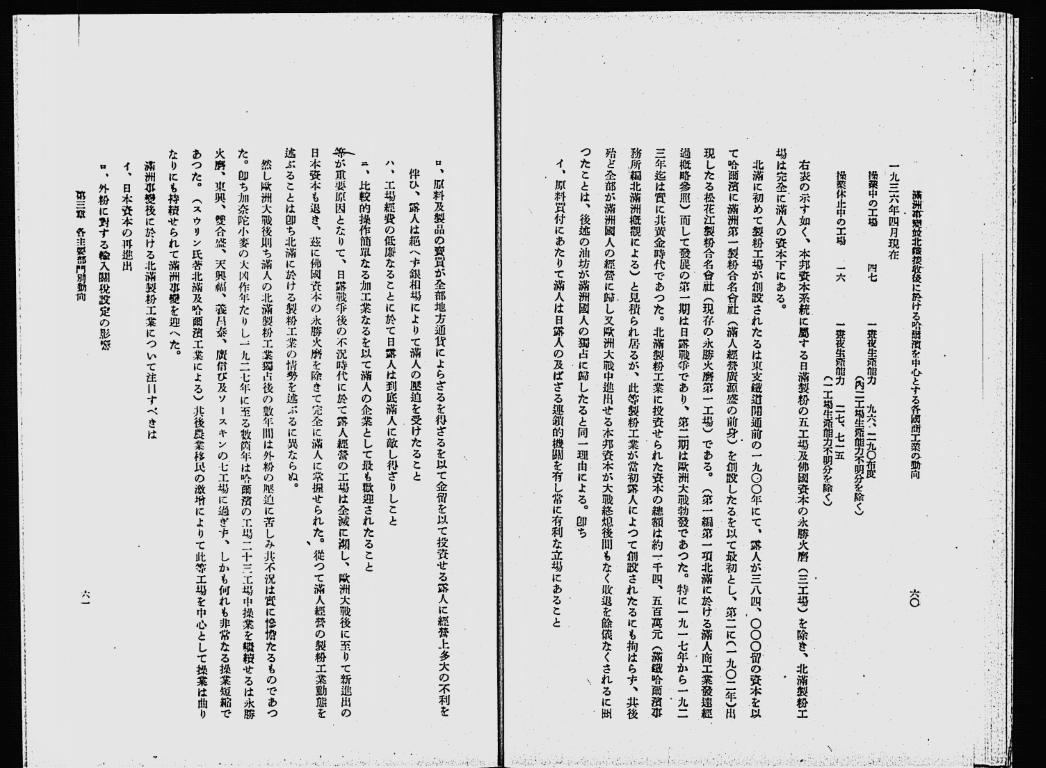 滿洲事變並北鐵接收後に於ける哈爾濱を中心とする各國商工業の動向
六〇
一九三六年四月現在
操業中の工場　四七　一晝夜生産能力　九六、二九〇布度
（內二工場生産能力不明分を除く）
操業休止中の工場　一六　一晝夜生産能力　二七、七二五
（一工場生産能力不明分を除く）
右表の示す如く、本邦資本系統に屬する日滿製粉の五工場及佛國資本の永勝火磨（三工場）を除き、北滿製粉工
場は完全に滿人の資本下にある。
北滿に初めて製粉工場が創設されたるは東支鐵道開通前の一九〇〇年にて、露人が三八四、〇〇〇留の資本を以
て哈爾濱に滿洲第一製粉合名會社（滿人經營廣源盛の前身）を創設したるを以て最初とし、第二に（一九〇二年）出
現したる松花江製粉合名會社（現存の永勝火磨第一工場）である。（第一編第一項北滿に於ける滿人商工業發達經
過槪略參照）而して發展の第一期は日露戰爭であり、第二期は歐洲大戰勃發であつた。特に一九一七年から一九二
三年迄は實に共黃金時代であつた。北滿製粉工業に投資せられた資本の總額は約一千四、五百萬元（滿鐵哈爾濱事
務所編北滿洲槪觀による）と見積られ居るが、此等製粉工業が當初露人によつて創設されたるにも拘はらず、其後
殆ど全部が滿洲國人の經營に歸し又歐洲大戰中進出せる本邦資本が大戰終熄後間もなく敗退を餘儀なくされるに至
つたことは、後述の油坊が滿洲國人の獨占に歸したると同一理由による。卽ち
イ、原料買付にあたりて滿人は日露人の及ばざる連鎖的機關を有し常に有利な立場にあること
ロ、原料及製品の賣買が全部地方通貨によらざるを得ざるを以て金留を以て投資せる露人に經營上多大の不利を
伴ひ、露人は絕へず銀相場によりて滿人の壓迫を受けたること
ハ、工場經費の低廉なることに於て日露人は到底滿人に敵し得ざりしこと
ニ、比較的操作簡單なる加工業なるを以て滿人の企業として最も歡迎されたること
等が重要原因となりて、日露戰爭後の不況時代に於て露人經營の工場は全滅に瀕し、歐洲大戰後に至りて新進出の
日本資本も退き、茲に佛國資本の永勝火磨を除きて完全に滿人に掌握せられた。從つて滿人經營の製粉工業動態を
述ぶることは卽ち北滿に於ける製粉工業の情勢を述ぶるに異ならぬ。
然し歐洲大戰後則ち滿人の北滿製粉工業獨占後の數年間は外粉の壓迫に苦しみ共不況は實に慘憺たるものであつ
た。卽ち加奈陀小麥の大凶作年たりし一九二七年に至る數箇年は哈爾濱の工場二十三工場中操業を繼續せるは永勝
火磨、東興、雙合盛、天興福、義昌泰、廣信び及ソースキンの七工場に過ぎず、しかも何れも非常なる操業短縮で
あつた。（スウリン氏著北滿及哈爾濱工業による）其後農業移民の激增によりて此等工場を中心として操業は曲り
なりにも持續せられて滿洲事變を迎へた。
滿洲事變後に於ける北滿製粉工業について注目すべきは
イ、日本資本の再進出
ロ、外粉に對する輸入關稅設定の影響
第三章　各主要部門別動向
六一